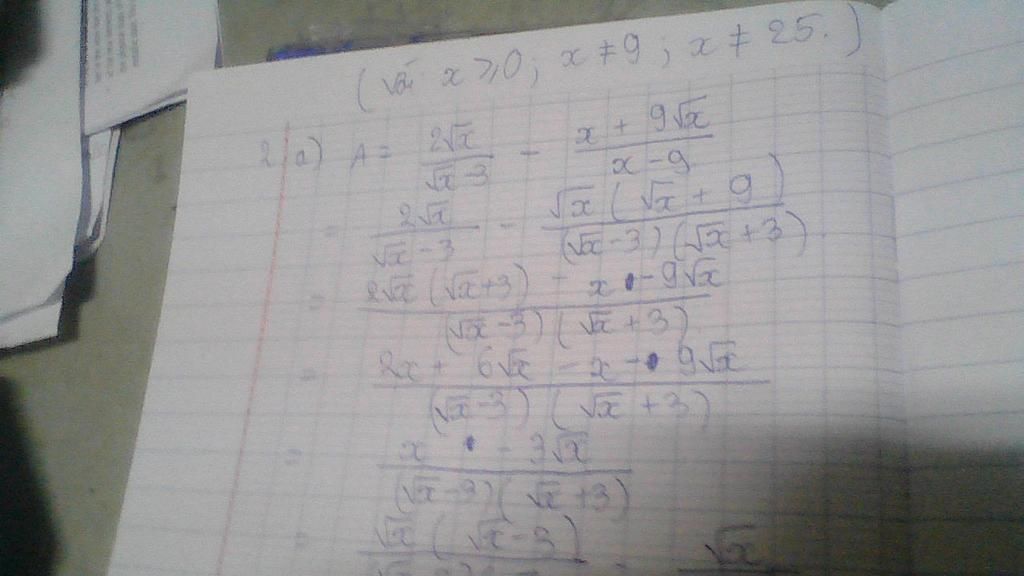 (với x ⩾ 0 ; x ≠ 9 ; x ≠ 25.)
2 a) A = 2√x / (√x - 3) - (x + 9√x) / (x - 9)
= 2√x / (√x - 3) - √x (√x + 9) / (√x - 3)(√x + 3)
= 2√x (√x + 3) - x - 9√x / (√x - 3)(√x + 3)
= 2x + 6√x - x - 9√x / (√x - 3)(√x + 3)
= x - 3√x / (√x - 3)(√x + 3)
= √x (√x - 3) = √x